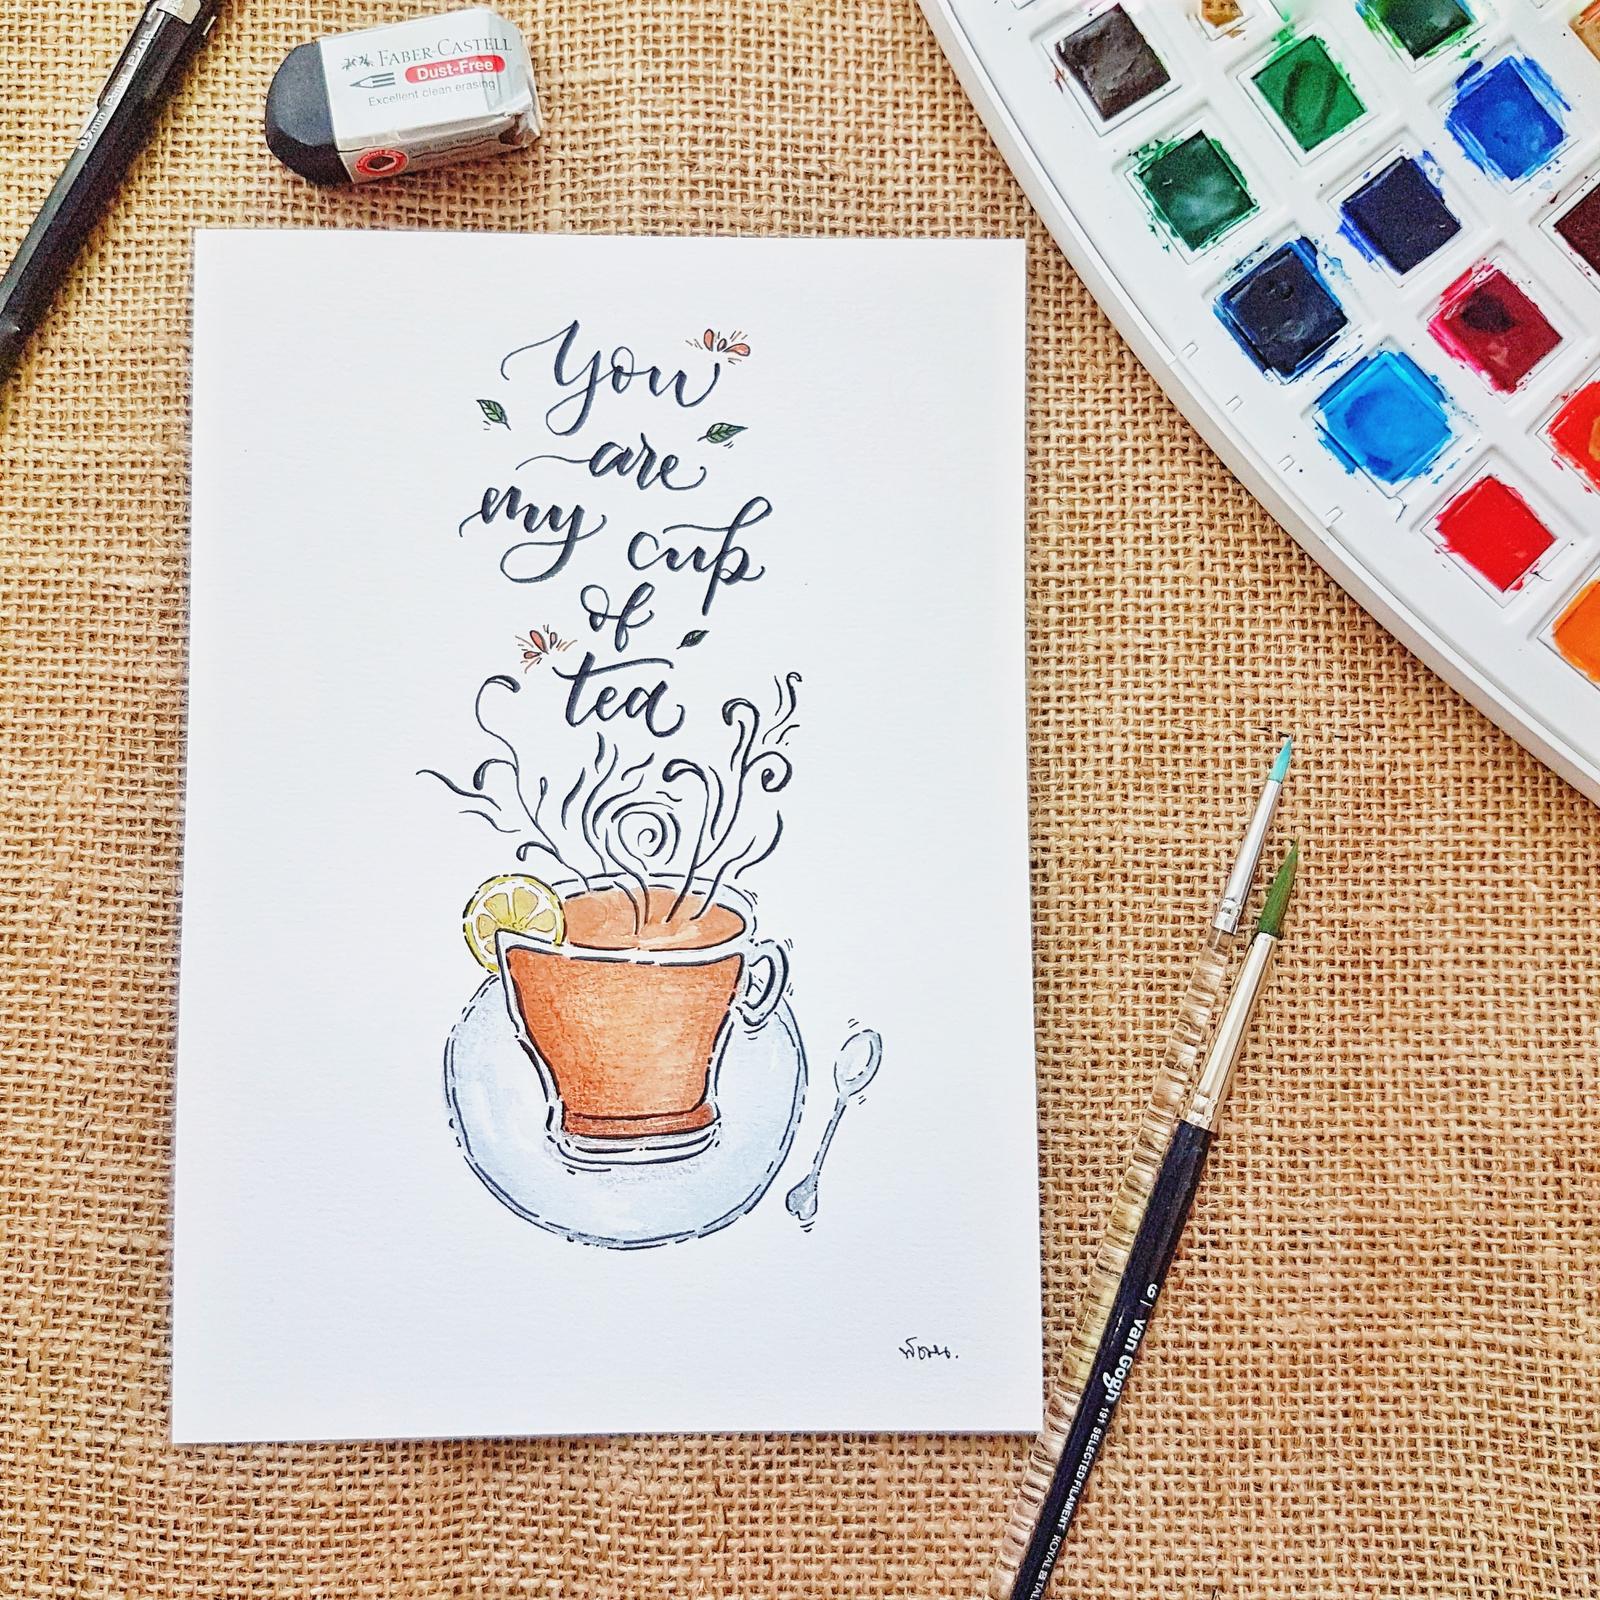 FABER-CASTELL
Dust-Free
Excellent clean erasing
You
are
my cup
of
tea
6 | van Gogh 191 SELECTED FILAMENT ROYAL & TAL